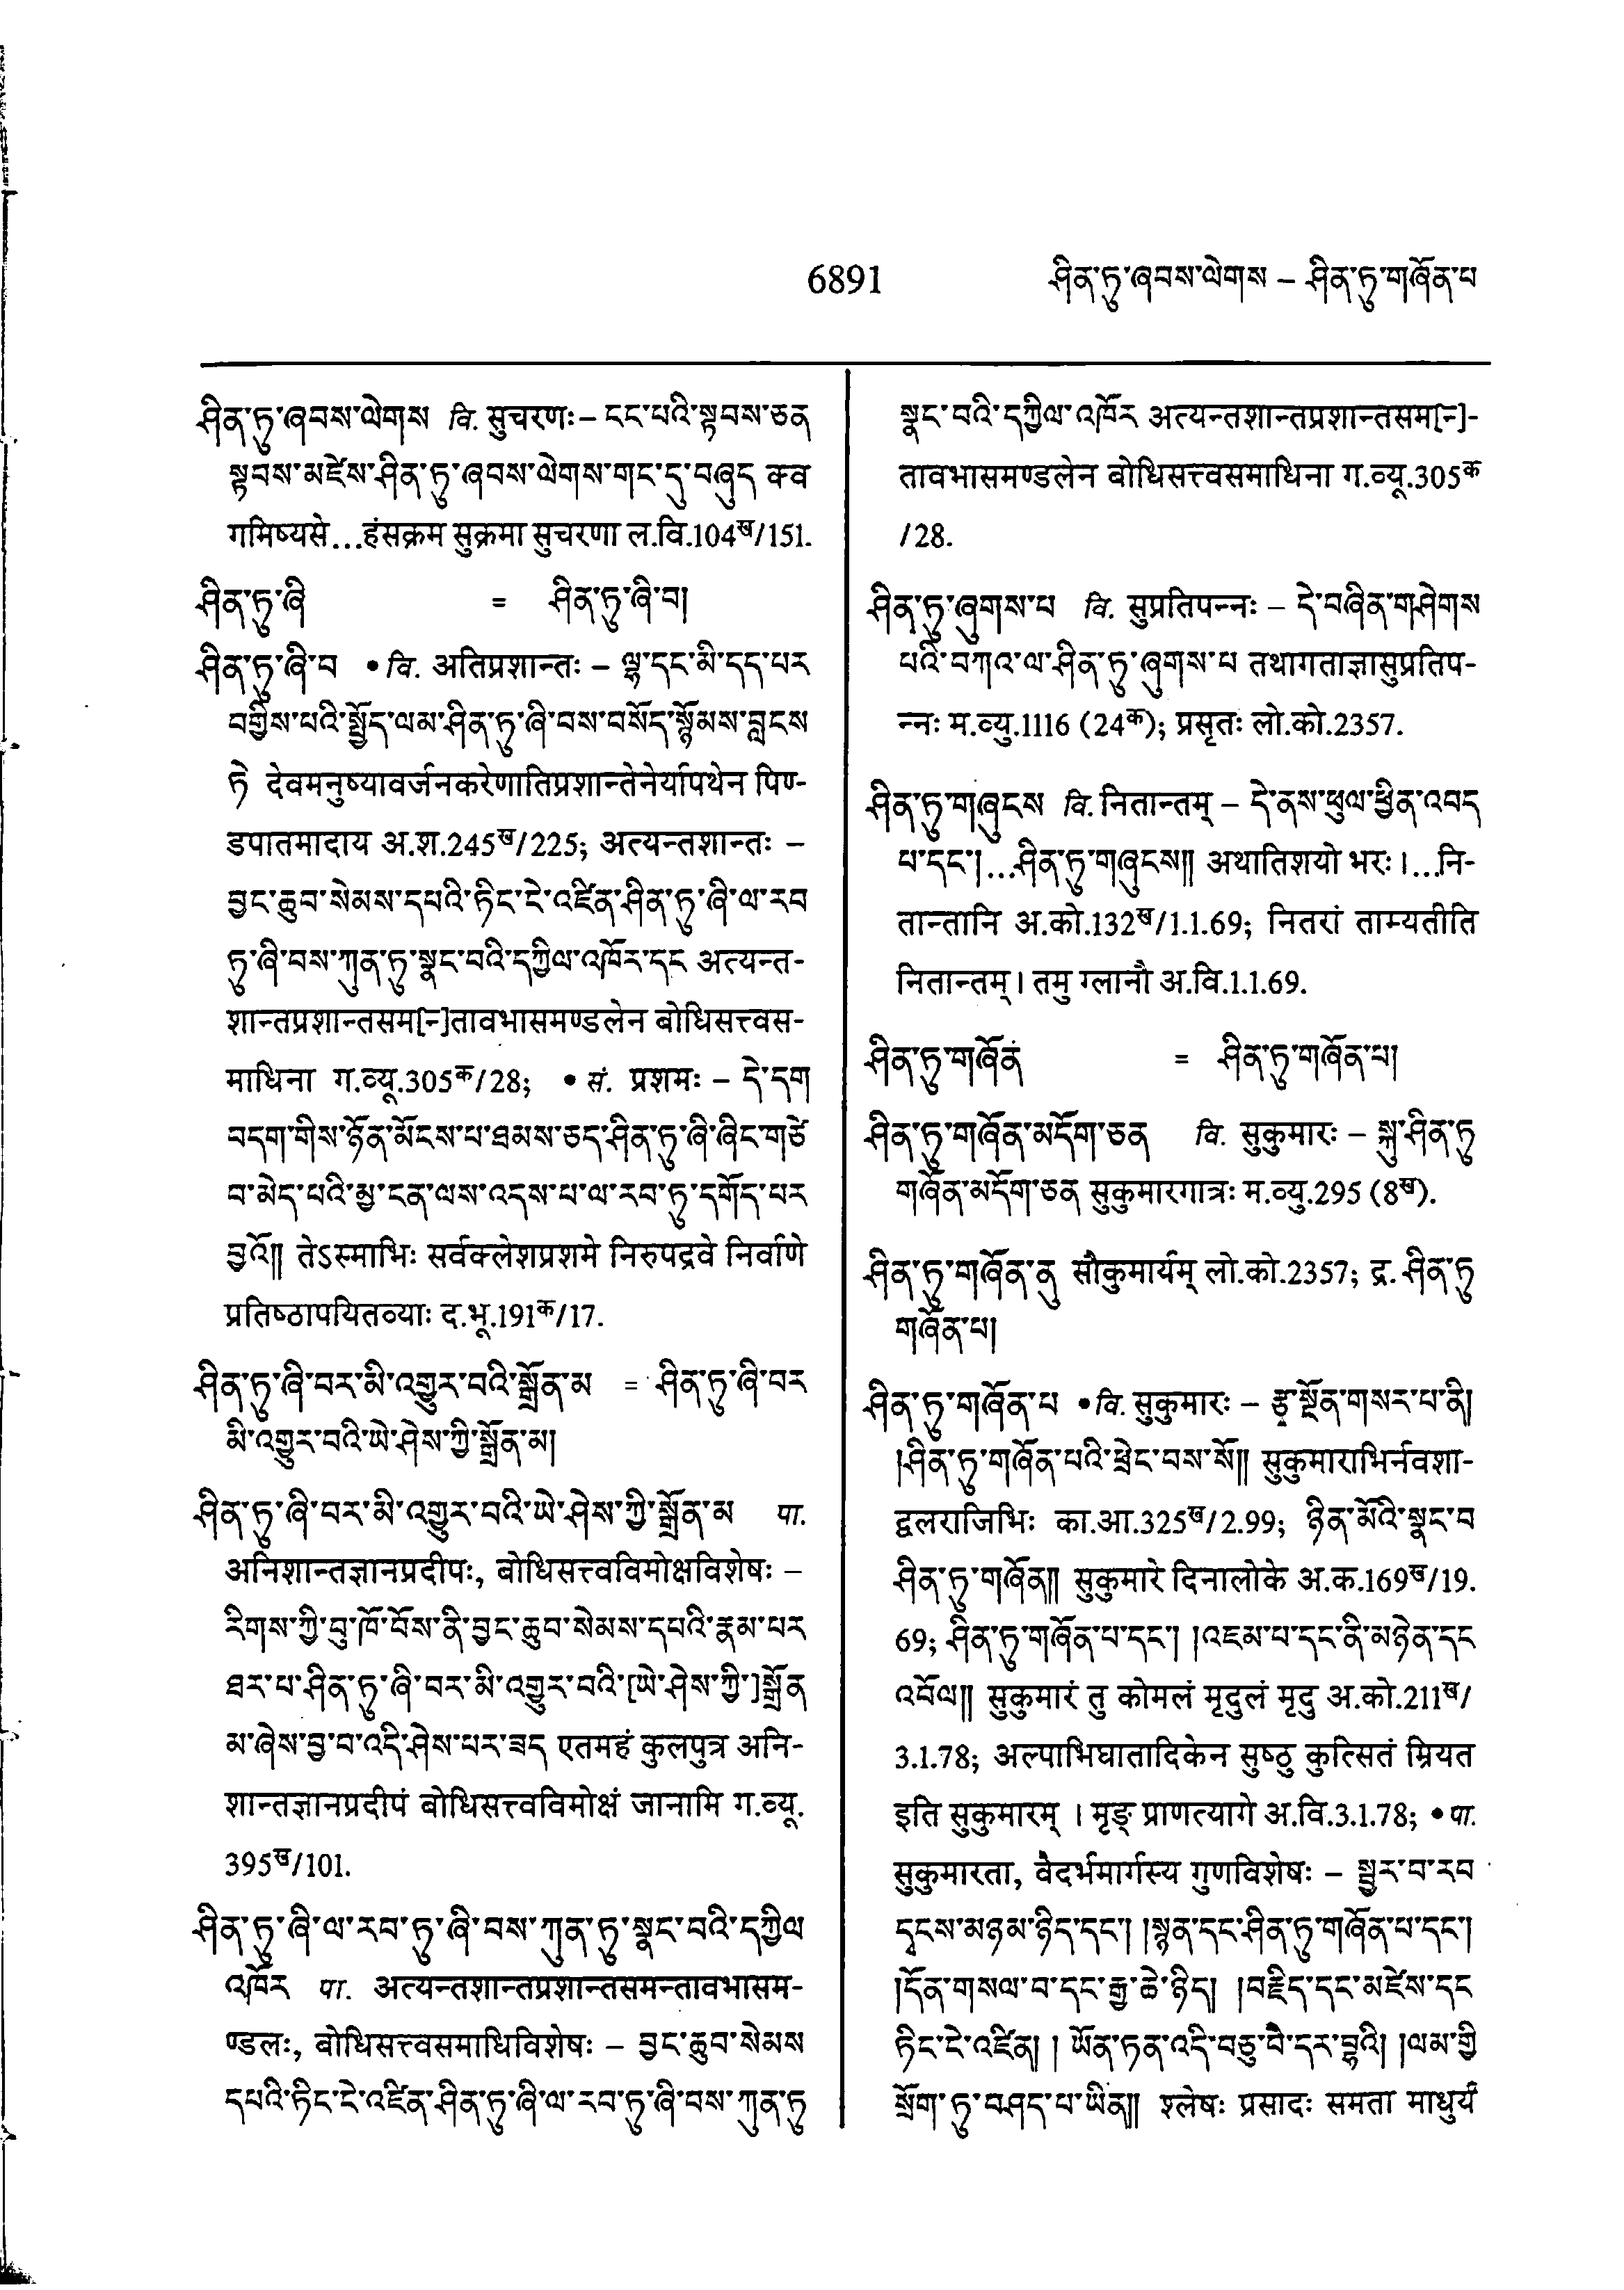 6891
ཤིན་ཏུ་ཞབས་ལེགས – ཤིན་ཏུ་གཞོན་པ
ཤིན་ཏུ་ཞབས་ལེགས वि. सुचरणः – ངང་པའི་སྟབས་ཅན
སྟབས་མཛེས་ཤིན་ཏུ་ཞབས་ལེགས་གང་དུ་བཞུད क्व
गमिष्यसे...हंसक्रम सुक्रमा सुचरणा ल.वि.104ख/151.
ཤིན་ཏུ་ཞི = ཤིན་ཏུ་ཞི་བ།
ཤིན་ཏུ་ཞི་བ • वि. अतिप्रशान्तः – ལྷ་དང་མི་དད་པར
བགྱིས་པའི་སྤྱོད་ལམ་ཤིན་ཏུ་ཞི་བས་བསོད་སྙོམས་བླངས
ཏེ देवमनुष्यावर्जनकरेणातिप्रशान्तेनेर्यापथेन पिण्-
डपातमादाय अ.श.245ख/225; अत्यन्तशान्तः –
བྱང་ཆུབ་སེམས་དཔའི་ཏིང་ངེ་འཛིན་ཤིན་ཏུ་ཞི་ལ་རབ
ཏུ་ཞི་བས་ཀུན་ཏུ་སྣང་བའི་དཀྱིལ་འཁོར་དང अत्यन्त-
शान्तप्रशान्तसम[न्]तावभासमण्डलेन बोधिसत्त्वस-
माधिना ग.व्यू.305क/28; • सं. प्रशमः – དེ་དག
བདག་གིས་ཉོན་མོངས་པ་ཐམས་ཅད་ཤིན་ཏུ་ཞི་ཞིང་གཙེ
བ་མེད་པའི་མྱ་ངན་ལས་འདས་པ་ལ་རབ་ཏུ་དགོད་པར
བྱའོ།། तेऽस्माभिः सर्वक्लेशप्रशमे निरुपद्रवे निर्वाणे
प्रतिष्ठापयितव्याः द.भू.191क/17.
ཤིན་ཏུ་ཞི་བར་མི་འགྱུར་བའི་སྒྲོན་མ = ཤིན་ཏུ་ཞི་བར
མི་འགྱུར་བའི་ཡེ་ཤེས་ཀྱི་སྒྲོན་མ།
ཤིན་ཏུ་ཞི་བར་མི་འགྱུར་བའི་ཡེ་ཤེས་ཀྱི་སྒྲོན་མ पा.
अनिशान्तज्ञानप्रदीपः, बोधिसत्त्वविमोक्षविशेषः –
རིགས་ཀྱི་བུ་ཁོ་བོས་ནི་བྱང་ཆུབ་སེམས་དཔའི་རྣམ་པར
ཐར་པ་ཤིན་ཏུ་ཞི་བར་མི་འགྱུར་བའི་[ཡེ་ཤེས་ཀྱི་]སྒྲོན
མ་ཞེས་བྱ་བ་འདི་ཤེས་པར་ཟད एतमहं कुलपुत्र अनि-
शान्तज्ञानप्रदीपं बोधिसत्त्वविमोक्षं जानामि ग.व्यू.
395ख/101.
ཤིན་ཏུ་ཞི་ལ་རབ་ཏུ་ཞི་བས་ཀུན་ཏུ་སྣང་བའི་དཀྱིལ
འཁོར पा. अत्यन्तशान्तप्रशान्तसमन्तावभासम-
ण्डलः, बोधिसत्त्वसमाधिविशेषः – བྱང་ཆུབ་སེམས
དཔའི་ཏིང་ངེ་འཛིན་ཤིན་ཏུ་ཞི་ལ་རབ་ཏུ་ཞི་བས་ཀུན་ཏུ
སྣང་བའི་དཀྱིལ་འཁོར अत्यन्तशान्तप्रशान्तसम[न्]-
तावभासमण्डलेन बोधिसत्त्वसमाधिना ग.व्यू.305क
/28.
ཤིན་ཏུ་ཞུགས་པ वि. सुप्रतिपन्नः – དེ་བཞིན་གཤེགས
པའི་བཀའ་ལ་ཤིན་ཏུ་ཞུགས་པ तथागताज्ञासुप्रतिप-
न्नः म.व्यु.1116 (24क); प्रसृतः लो.को.2357.
ཤིན་ཏུ་གཞུངས वि. नितान्तम् – དེ་ནས་ཕུལ་ཕྱིན་འབད
པ་དང་།...ཤིན་ཏུ་གཞུངས།། अथातिशयो भरः।...नि-
तान्तानि अ.को.132ख/1.1.69; नितरां ताम्यतीति
नितान्तम्। तमु ग्लानौ अ.वि.1.1.69.
ཤིན་ཏུ་གཞོན = ཤིན་ཏུ་གཞོན་པ།
ཤིན་ཏུ་གཞོན་མདོག་ཅན वि. सुकुमारः – སྐུ་ཤིན་ཏུ
གཞོན་མདོག་ཅན सुकुमारगात्रः म.व्यु.295 (8ख).
ཤིན་ཏུ་གཞོན་ནུ सौकुमार्यम् लो.को.2357; द्र. ཤིན་ཏུ
གཞོན་པ།
ཤིན་ཏུ་གཞོན་པ • वि. सुकुमारः – རྩྭ་སྔོན་གསར་པ་ནི།
།ཤིན་ཏུ་གཞོན་པའི་ཕྲེང་བས་སོ།། सुकुमाराभिर्नवशा-
द्वलराजिभिः का.आ.325ख/2.99; ཉིན་མོའི་སྣང་བ
ཤིན་ཏུ་གཞོན།། सुकुमारे दिनालोके अ.क.169ख/19.
69; ཤིན་ཏུ་གཞོན་པ་དང་། །འཇམ་པ་དང་ནི་མཉེན་དང
འབོལ།། सुकुमारं तु कोमलं मृदुलं मृदु अ.को.211ख/
3.1.78; अल्पाभिघातादिकेन सुष्ठु कुत्सितं म्रियत
इति सुकुमारम् । मृङ् प्राणत्यागे अ.वि.3.1.78; • पा.
सुकुमारता, वैदर्भमार्गस्य गुणविशेषः – སྦྱར་བ་རབ
དྭངས་མཉམ་ཉིད་དང་། །སྙན་དང་ཤིན་ཏུ་གཞོན་པ་དང་།
།དོན་གསལ་བ་དང་རྒྱ་ཆེ་ཉིད། །བརྗིད་དང་མཛེས་དང
ཏིང་ངེ་འཛིན། །ཡོན་ཏན་འདི་བཅུ་བཻ་དར་བྷའི། །ལམ་གྱི
སྲོག་ཏུ་བཤད་པ་ཡིན།། श्लेषः प्रसादः समता माधुर्यं